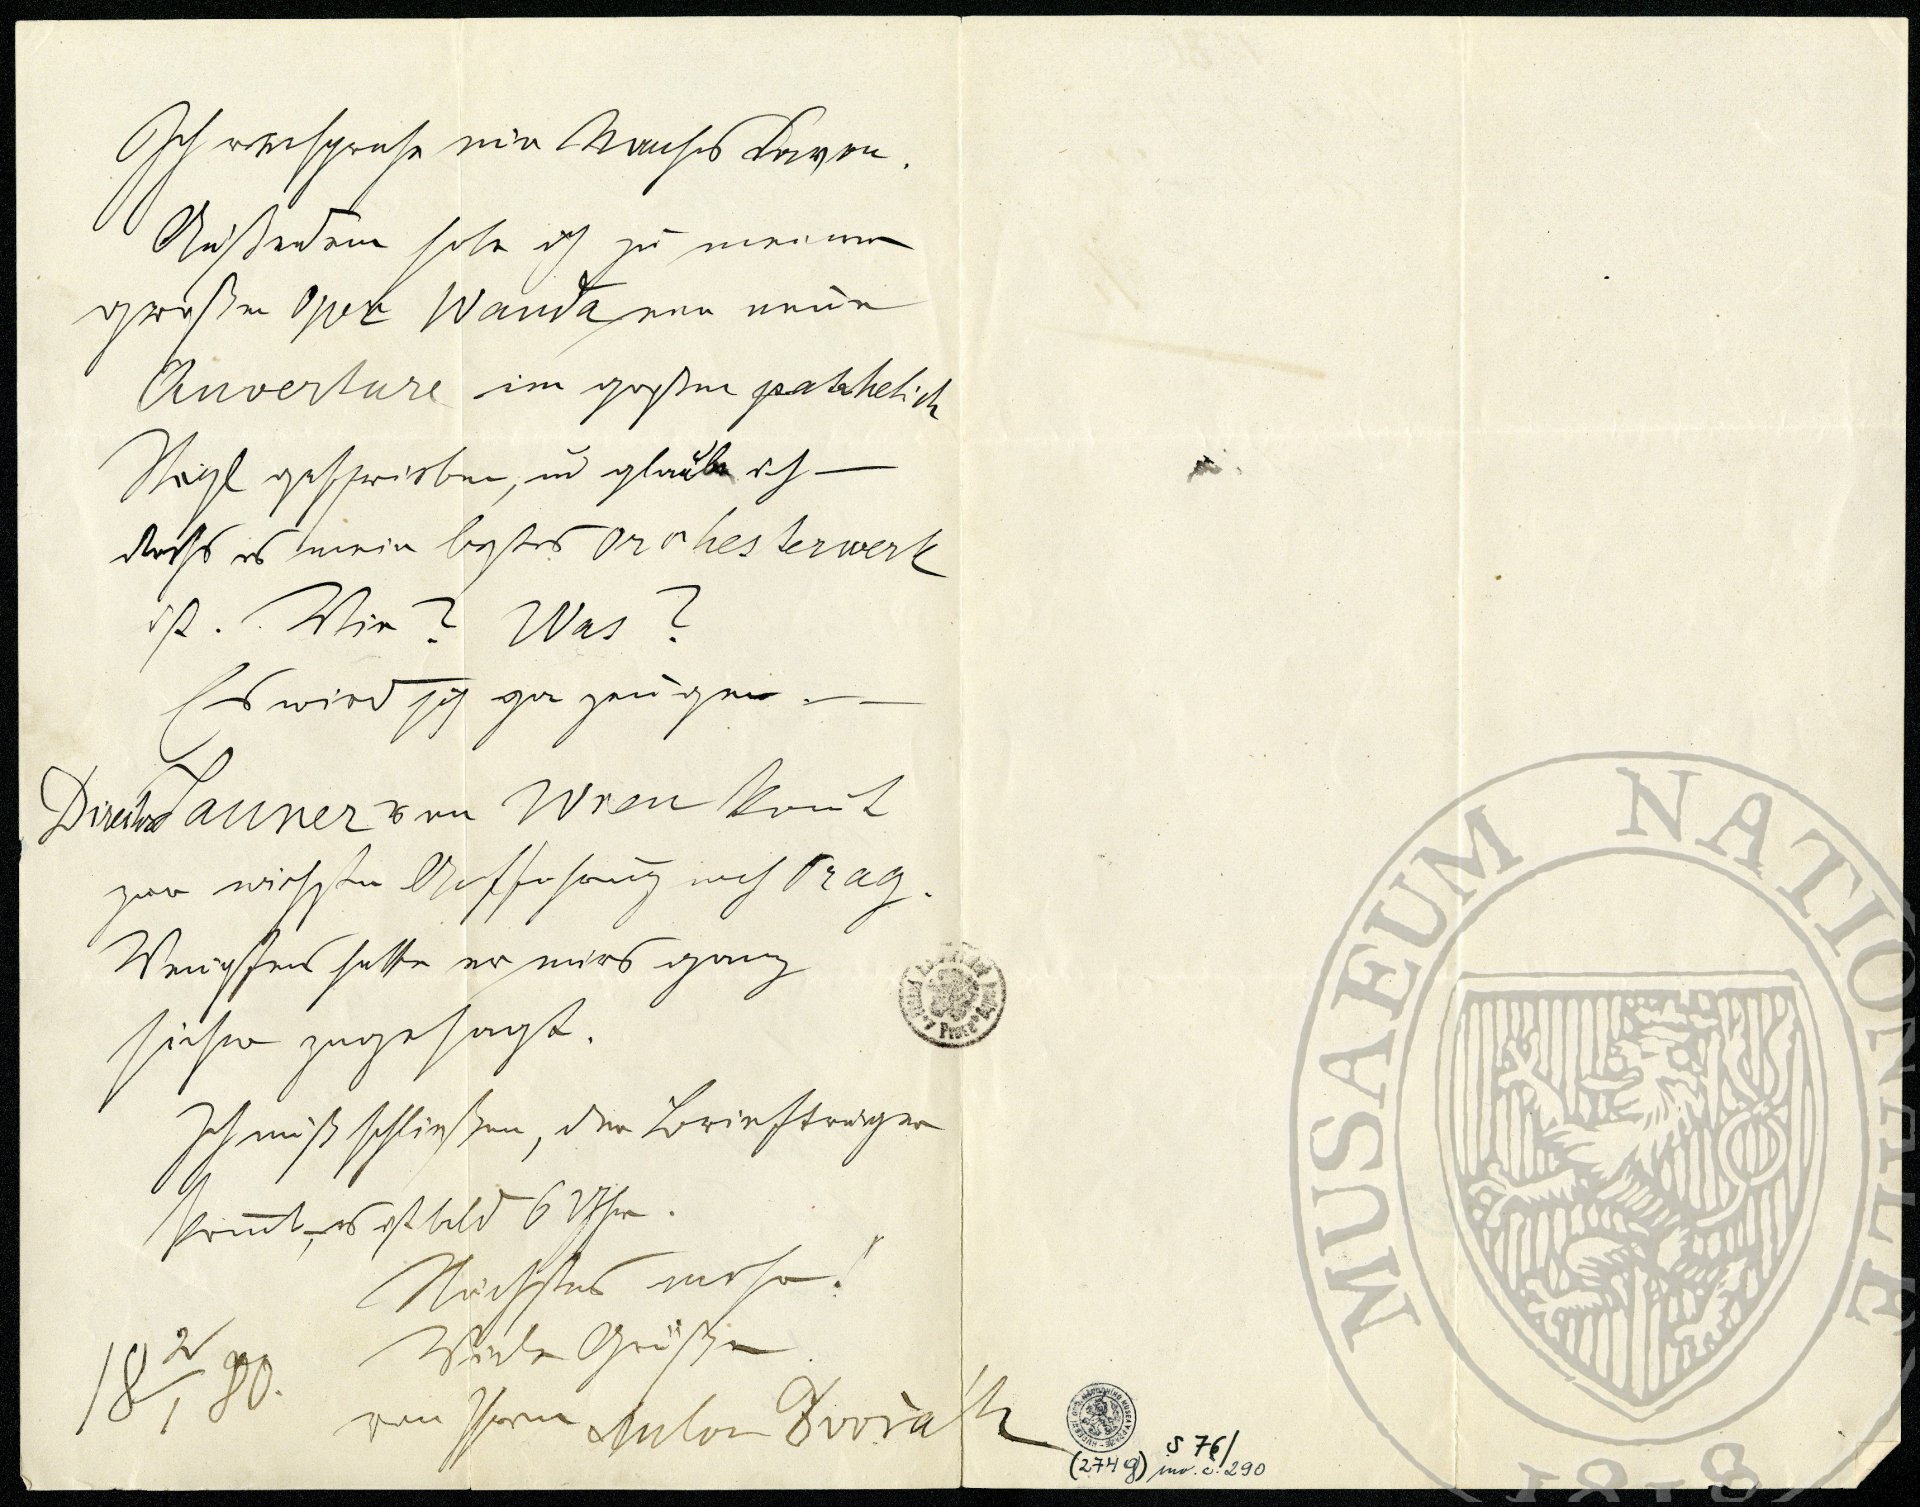 Ich verspreche mir Manches davon.
Außerdem habe ich zu meiner
großen Oper Wanda eine neue
Ouverture im großen pathetisch
Styl geschrieben, und glaube ich —
dass es mein bestes Orchesterwerk
ist. Wie? Was?
Es wird sich ja zeigen. —
Director Jauner von Wien komt
zur nächsten Aufführung nach Prag.
Wenigstens hatte er mirs ganz
sicher zugesagt.
Ich muß schließen, der Briefträger
komt, es ist bald 6 Uhr.
Nächstes mehr!
Viele Grüße
von Ihrem Anton Dvořák
18 2/1 80.
S 76/
(274 g) inv. č. 290
MUSAEUM NATIONALE
1818